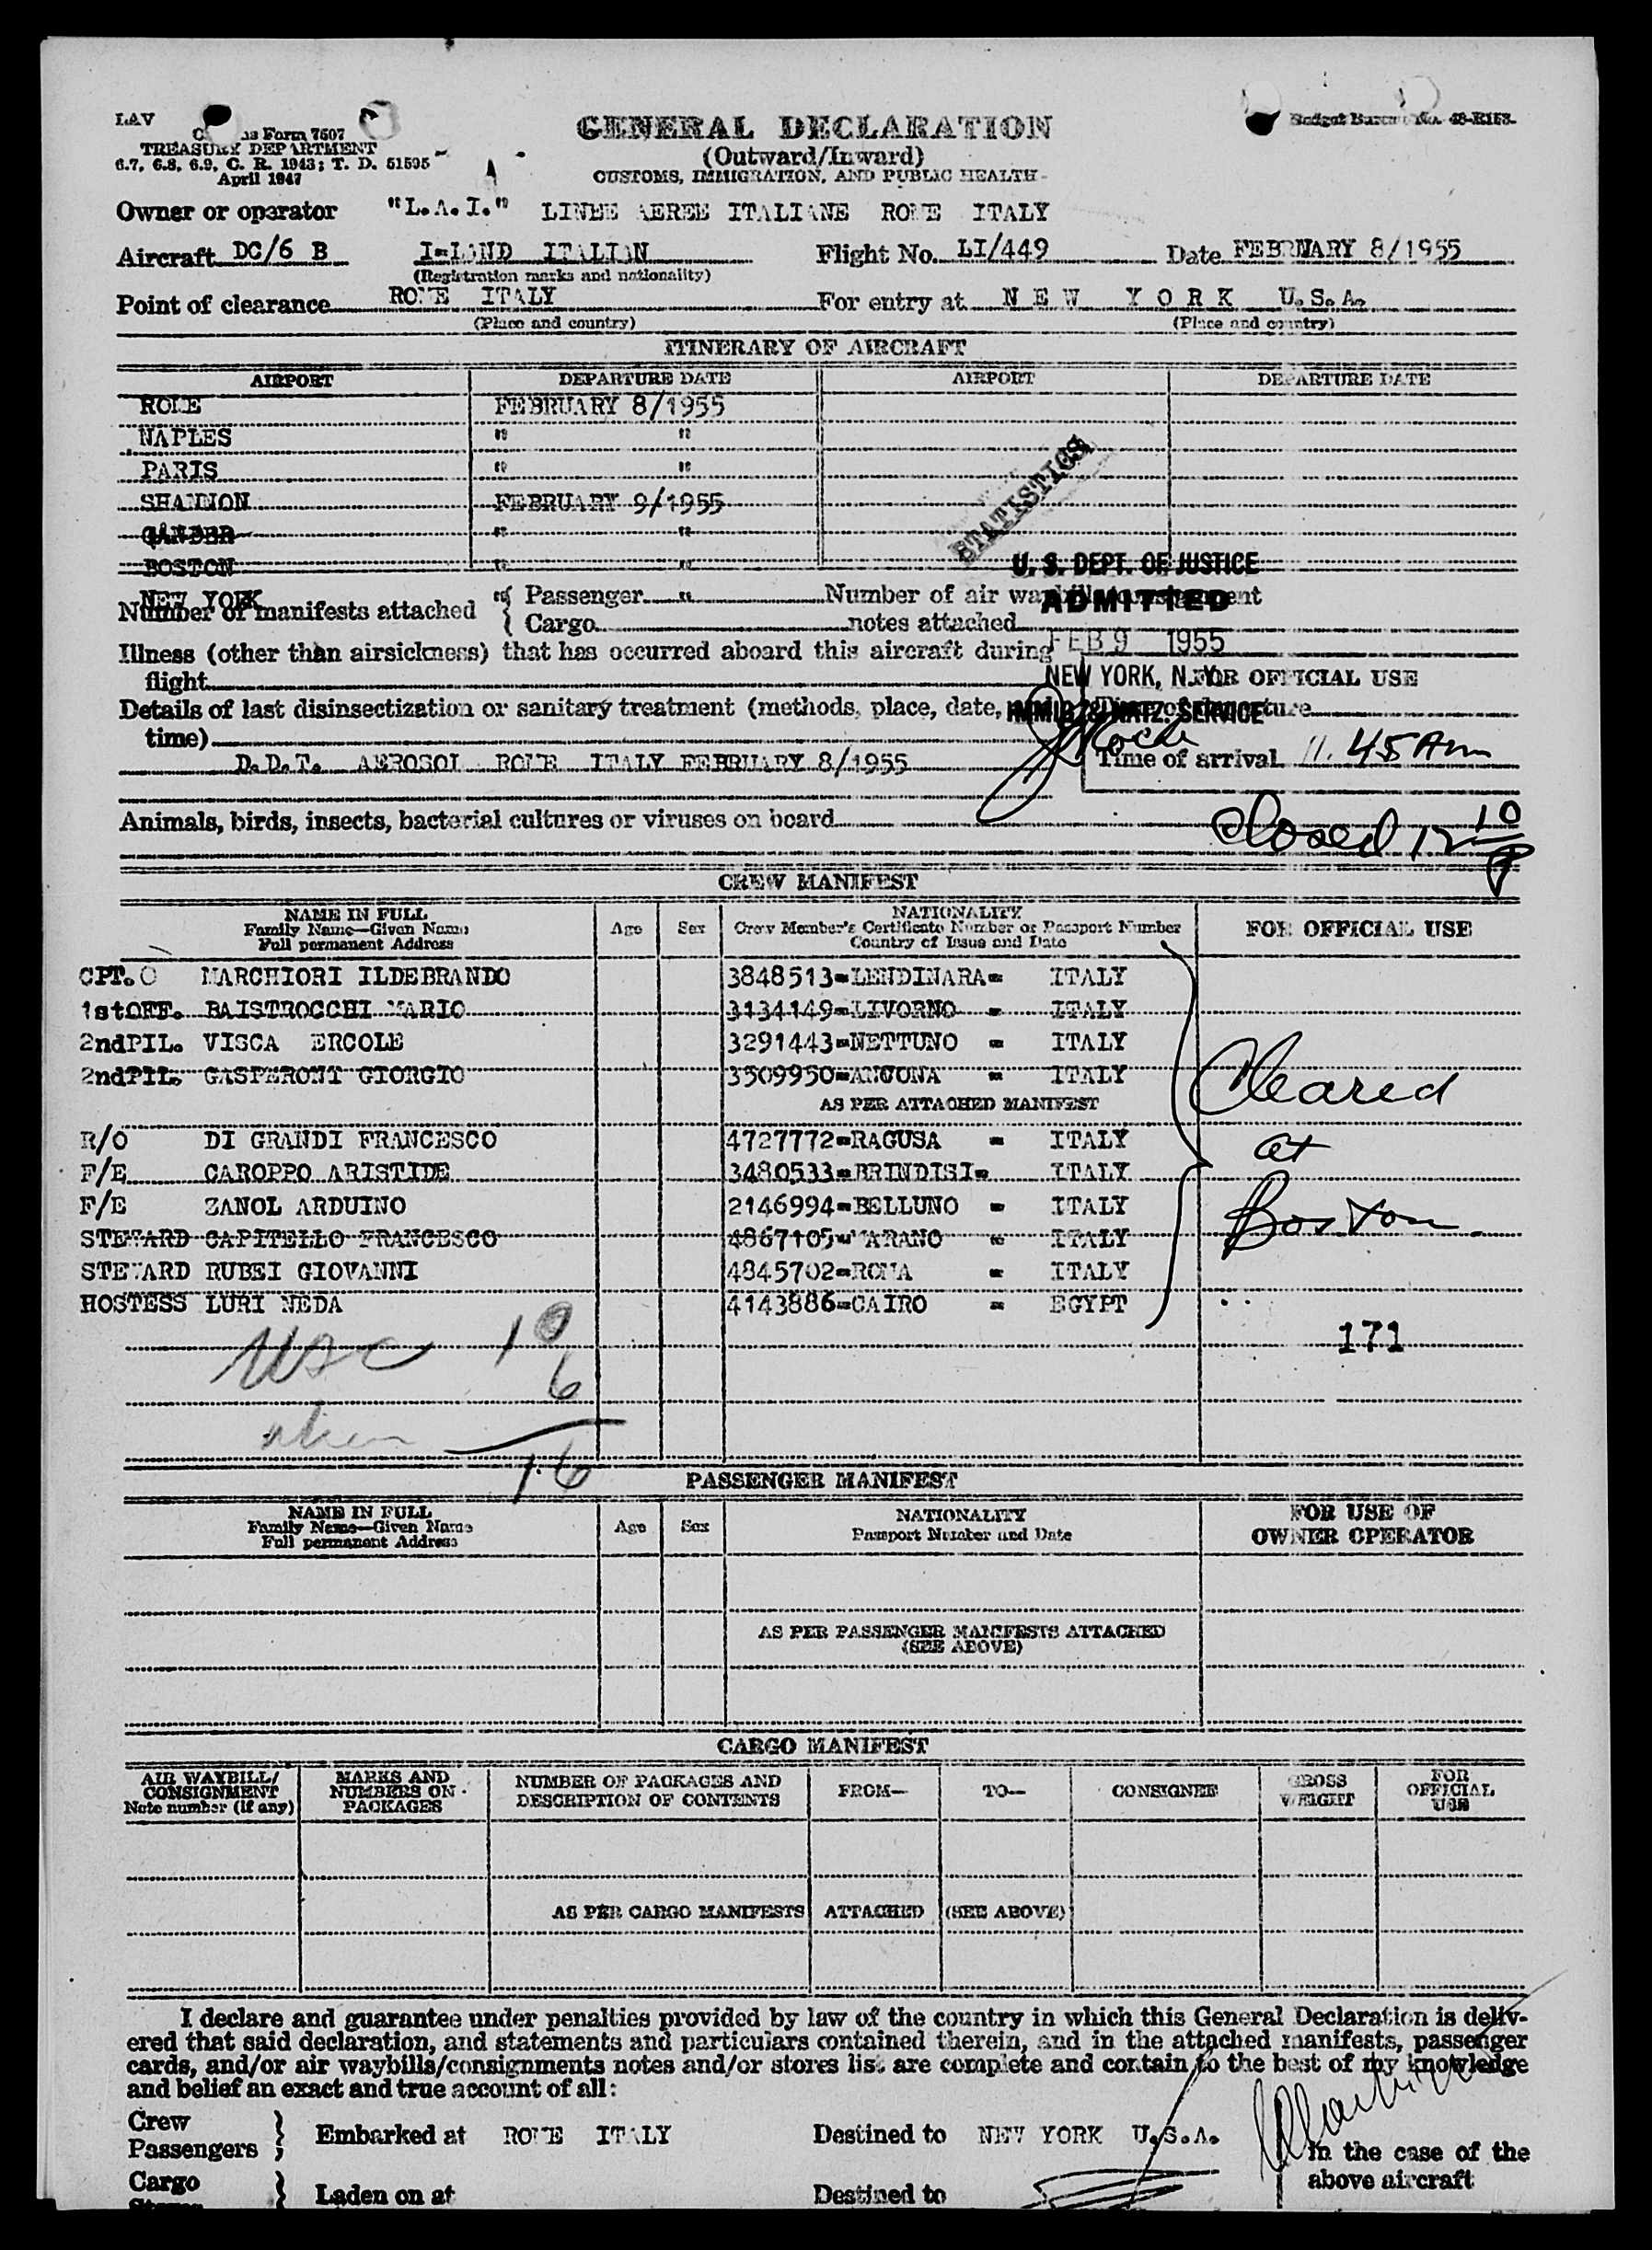 LAV
Form 7507
TREASURY DEPARTMENT
6.7, 6.8, 6.9, C. R. 1943; T. D. 51595
April 1947
GENERAL DECLARATION
(Outward/Inward)
CUSTOMS, IMMIGRATION, AND PUBLIC HEALTH
Budget Bureau No. 48-R153.
Owner or operator "L.A.I." LINEE AEREE ITALIANE ROME ITALY
Aircraft DC/6 B I-LAND ITALIAN Flight No. LI/449 Date FEBRUARY 8/1955
(Registration marks and nationality)
Point of clearance ROME ITALY For entry at NEW YORK U.S.A.
(Place and country) (Place and country)
ITINERARY OF AIRCRAFT
AIRPORT DEPARTURE DATE AIRPORT DEPARTURE DATE
ROME FEBRUARY 8/1955
NAPLES " "
PARIS " "
SHANNON FEBRUARY 9/1955
GANDER " "
BOSTON " "
NEW YORK " "
STATISTICS
U. S. DEPT. OF JUSTICE
ADMITTED
FEB 9 1955
NEW YORK, N.Y.
IMMIG. & NATZ. SERVICE
Number of manifests attached { Passenger Number of air waybills/consignment
Cargo notes attached
Illness (other than airsickness) that has occurred aboard this aircraft during
flight
FOR OFFICIAL USE
Details of last disinsectization or sanitary treatment (methods, place, date,
time)
Time of departure
D.D.T. AEROSOL ROME ITALY FEBRUARY 8/1955
Time of arrival 11.45 AM
Animals, birds, insects, bacterial cultures or viruses on board
Closed 12 10 P
CREW MANIFEST
NAME IN FULL
Family Name—Given Name
Full permanent Address
Age Sex
NATIONALITY
Crew Member's Certificate Number or Passport Number
Country of Issue and Date
FOR OFFICIAL USE
CPT. MARCHIORI ILDEBRANDO 3848513=LENDINARA= ITALY
1stOFF. BAISTROCCHI MARIO 3134149=LIVORNO = ITALY
2ndPIL. VISCA ERCOLE 3291443=NETTUNO = ITALY
2ndPIL. GASPERONI GIORGIO 3509950=ANCONA = ITALY
AS PER ATTACHED MANIFEST
R/O DI GRANDI FRANCESCO 4727772=RAGUSA = ITALY
F/E CAROPPO ARISTIDE 3480533=BRINDISI= ITALY
F/E ZANOL ARDUINO 2146994=BELLUNO = ITALY
STEWARD CAPITELLO FRANCESCO 4867105= = ITALY
STEWARD RUBEI GIOVANNI 4845702=ROMA = ITALY
HOSTESS LURI NEDA 4143886=CAIRO = EGYPT
Cleared
at
Boston
171
USC 10
6
alien
16
PASSENGER MANIFEST
NAME IN FULL
Family Name—Given Name
Full permanent Address
Age Sex
NATIONALITY
Passport Number and Date
FOR USE OF
OWNER OPERATOR
AS PER PASSENGER MANIFESTS ATTACHED
(SEE ABOVE)
CARGO MANIFEST
AIR WAYBILL/
CONSIGNMENT
Note number (if any)
MARKS AND
NUMBERS ON
PACKAGES
NUMBER OF PACKAGES AND
DESCRIPTION OF CONTENTS
FROM—
TO—
CONSIGNEE
GROSS
WEIGHT
FOR
OFFICIAL
USE
AS PER CARGO MANIFESTS ATTACHED (SEE ABOVE)
I declare and guarantee under penalties provided by law of the country in which this General Declaration is deliv-
ered that said declaration, and statements and particulars contained therein, and in the attached manifests, passenger
cards, and/or air waybills/consignments notes and/or stores list are complete and contain to the best of my knowledge
and belief an exact and true account of all:
Crew
Passengers } Embarked at ROME ITALY Destined to NEW YORK U.S.A.
In the case of the
above aircraft
Cargo
Stores } Laden on at Destined to